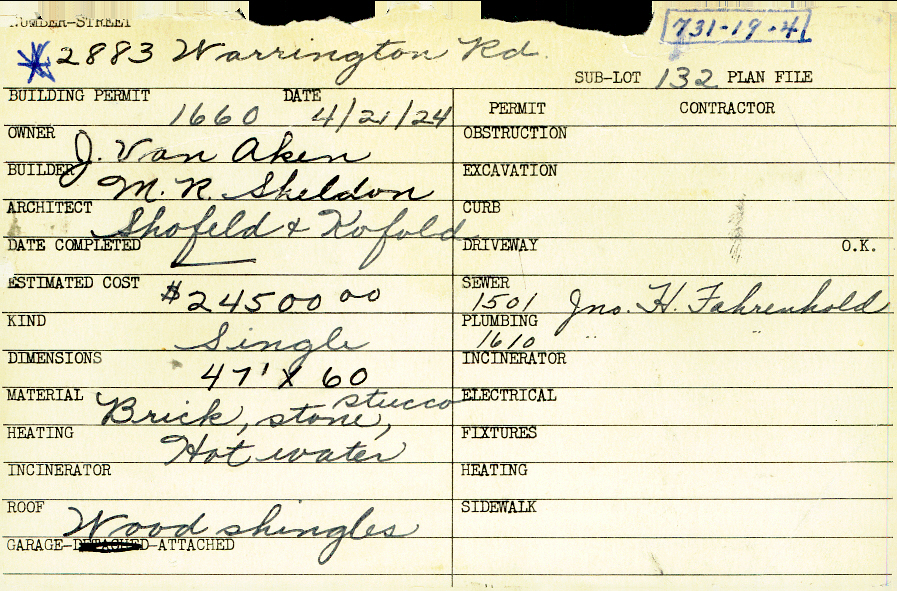 NUMBER-STREET
731-19-4
2883 Warrington Rd.
SUB-LOT 132 PLAN FILE
BUILDING PERMIT 1660 DATE 4/21/24
OWNER J. Van Aken
BUILDER M. R. Skeldon
ARCHITECT Shofeld & Kofold
DATE COMPLETED
ESTIMATED COST $24500 00
KIND Single
DIMENSIONS 47' X 60
MATERIAL Brick, stone, stucco
HEATING Hot water
INCINERATOR
ROOF Wood shingles
GARAGE-DETACHED-ATTACHED
PERMIT CONTRACTOR
OBSTRUCTION
EXCAVATION
CURB
DRIVEWAY O.K.
SEWER 1501 Jno. H. Fahrenhold
PLUMBING 1610 "
INCINERATOR
ELECTRICAL
FIXTURES
HEATING
SIDEWALK